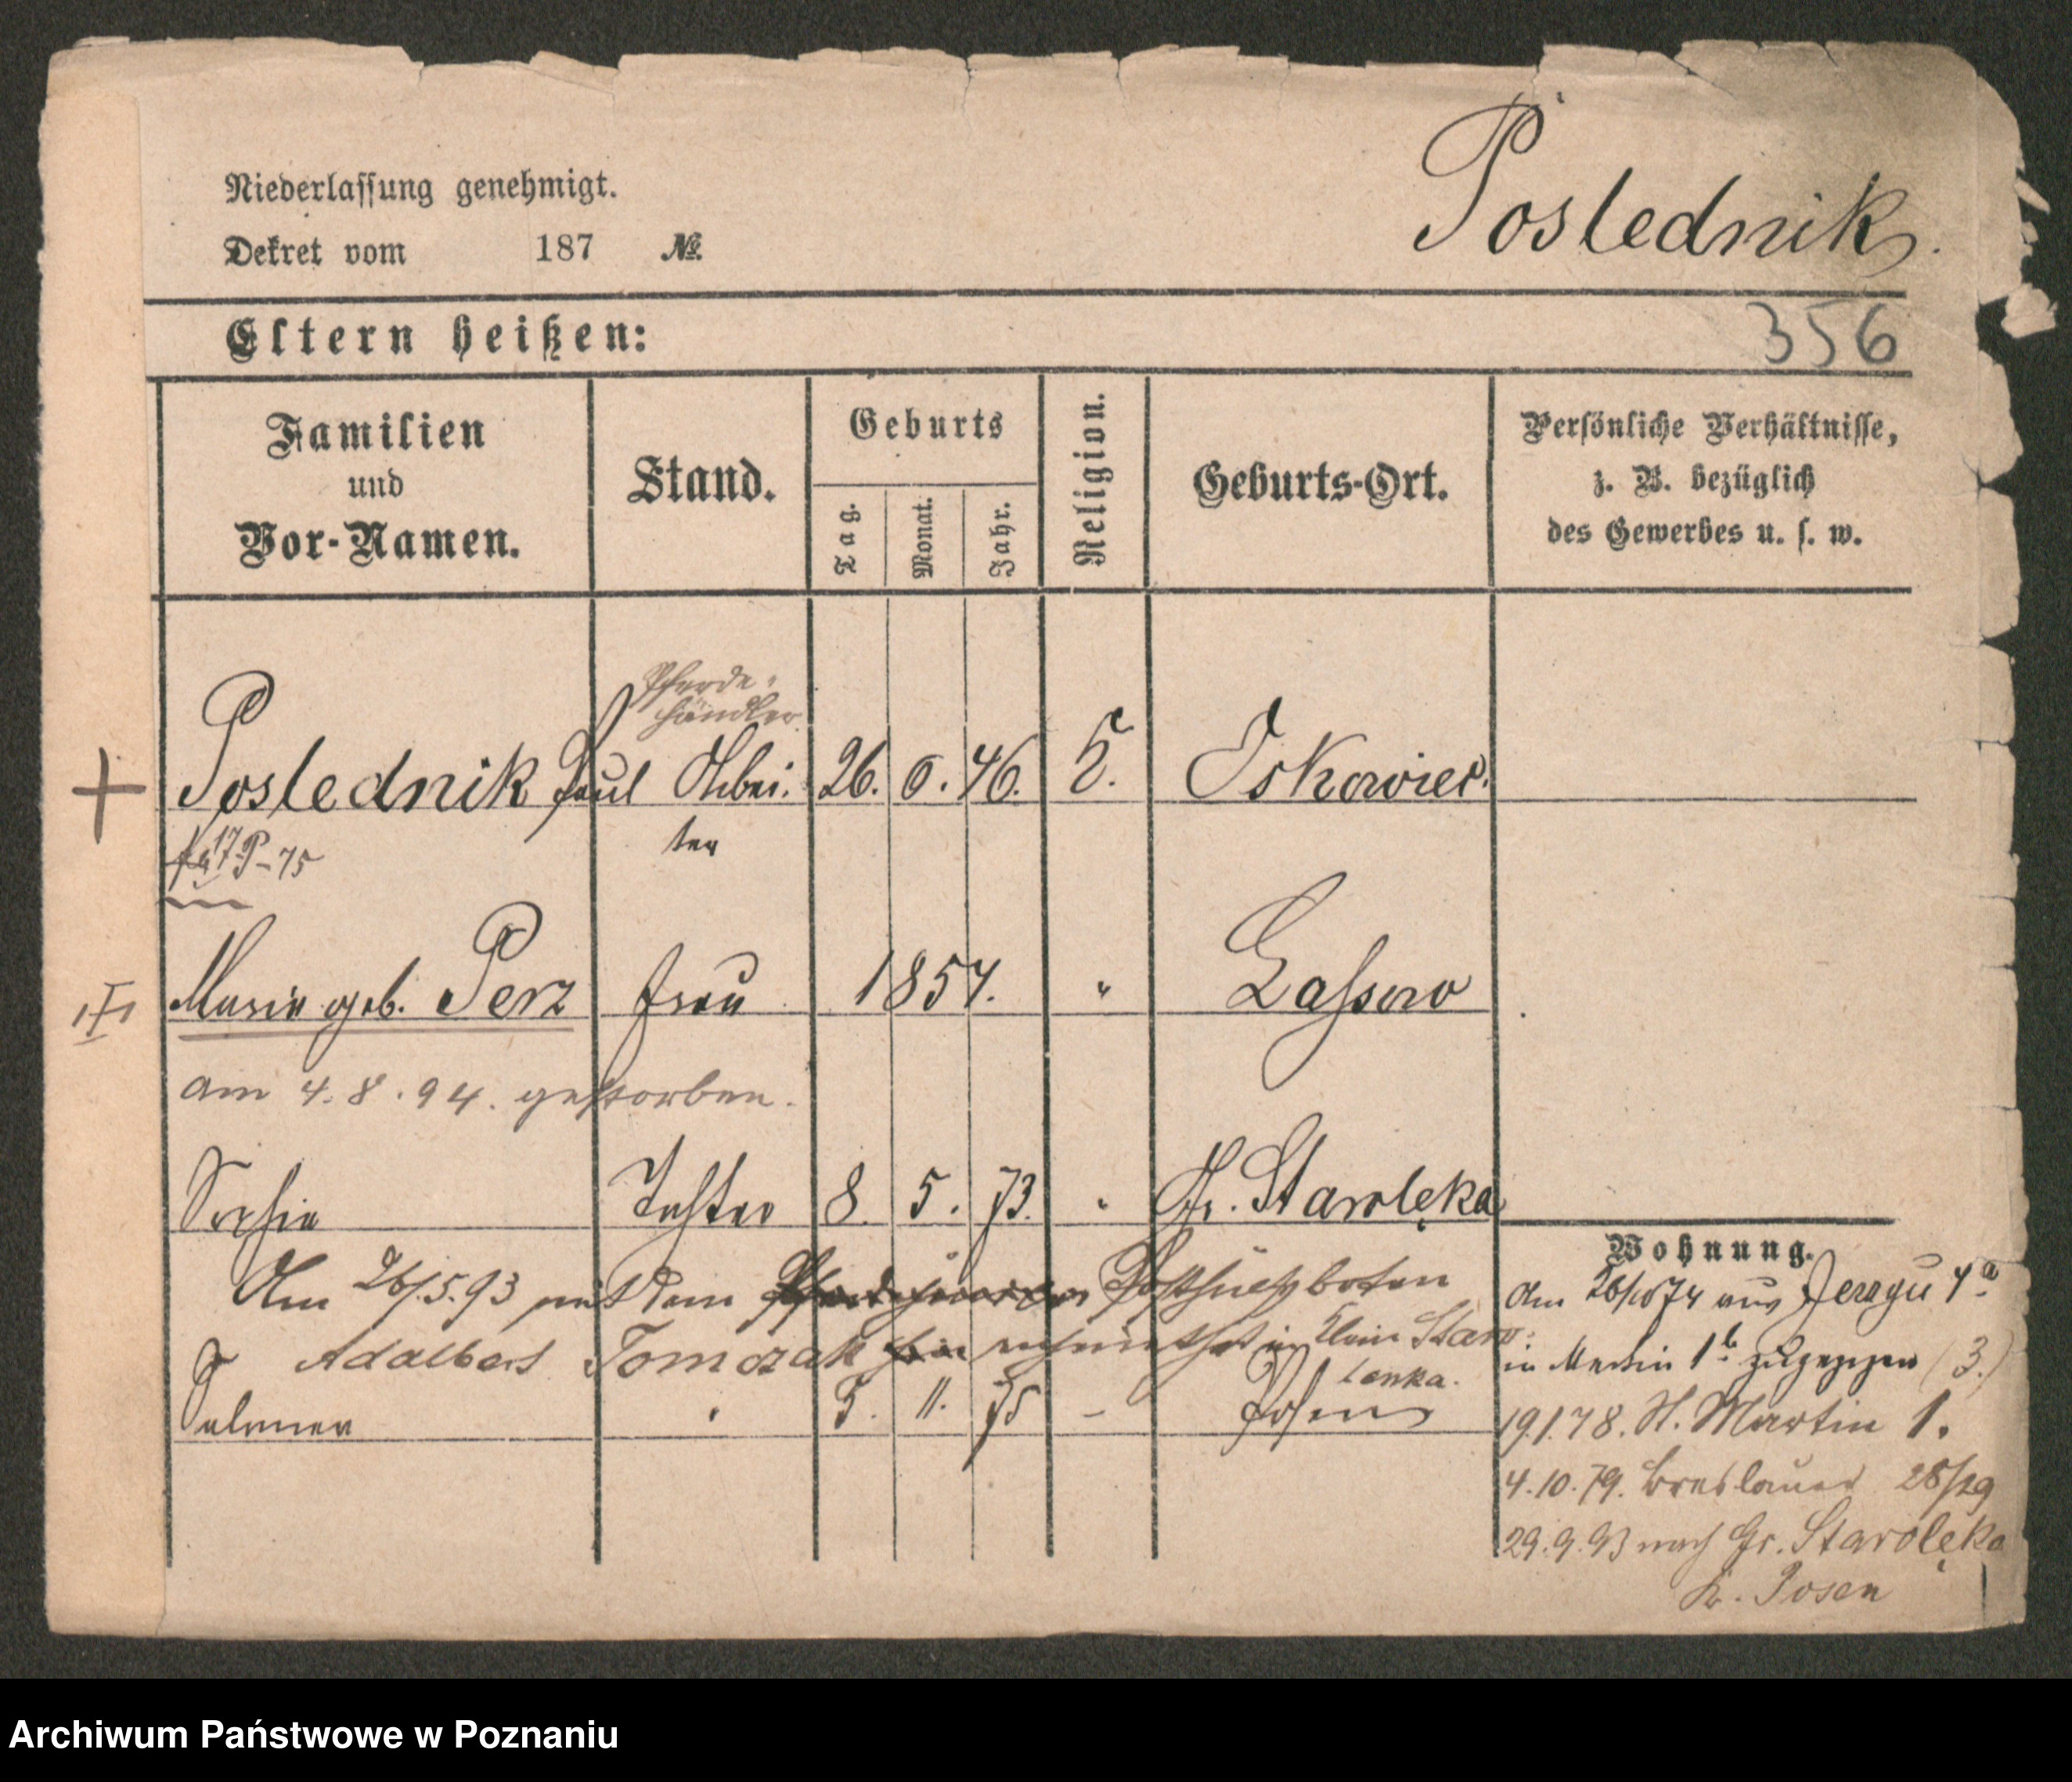 Poslednik.
Niederlassung genehmigt.
Dekret vom 187 №.
Eltern heißen:
356
Familien und Vor-Namen.
Stand.
Geburts
Tag. Monat. Jahr.
Religion.
Geburts-Ort.
Persönliche Verhältnisse,
z. B. bezüglich
des Gewerbes u. s. w.
Pferde-
händler
Poslednik Paul Arbei. 26. 6. 46. K.
ter
17 P-75
Marie geb. Perz Frau 1854. "
am 4.8.94. gestorben.
Sophie Tochter 8. 5. 73. " Gr. Starolęka
Am 26/5.93 mit dem
Adalbert Tomczak in Klein Staro-
lenka.
5. 11. 75 - Posen
Wohnung.
am 26/10 74 aus 4a
in Martin 1b zugezogen (3.)
19.1.78. St. Martin 1.
4.10.79. Breslauer 28/29
29.9.93 nach Gr. Starolęka
Kr. Posen
Archiwum Państwowe w Poznaniu